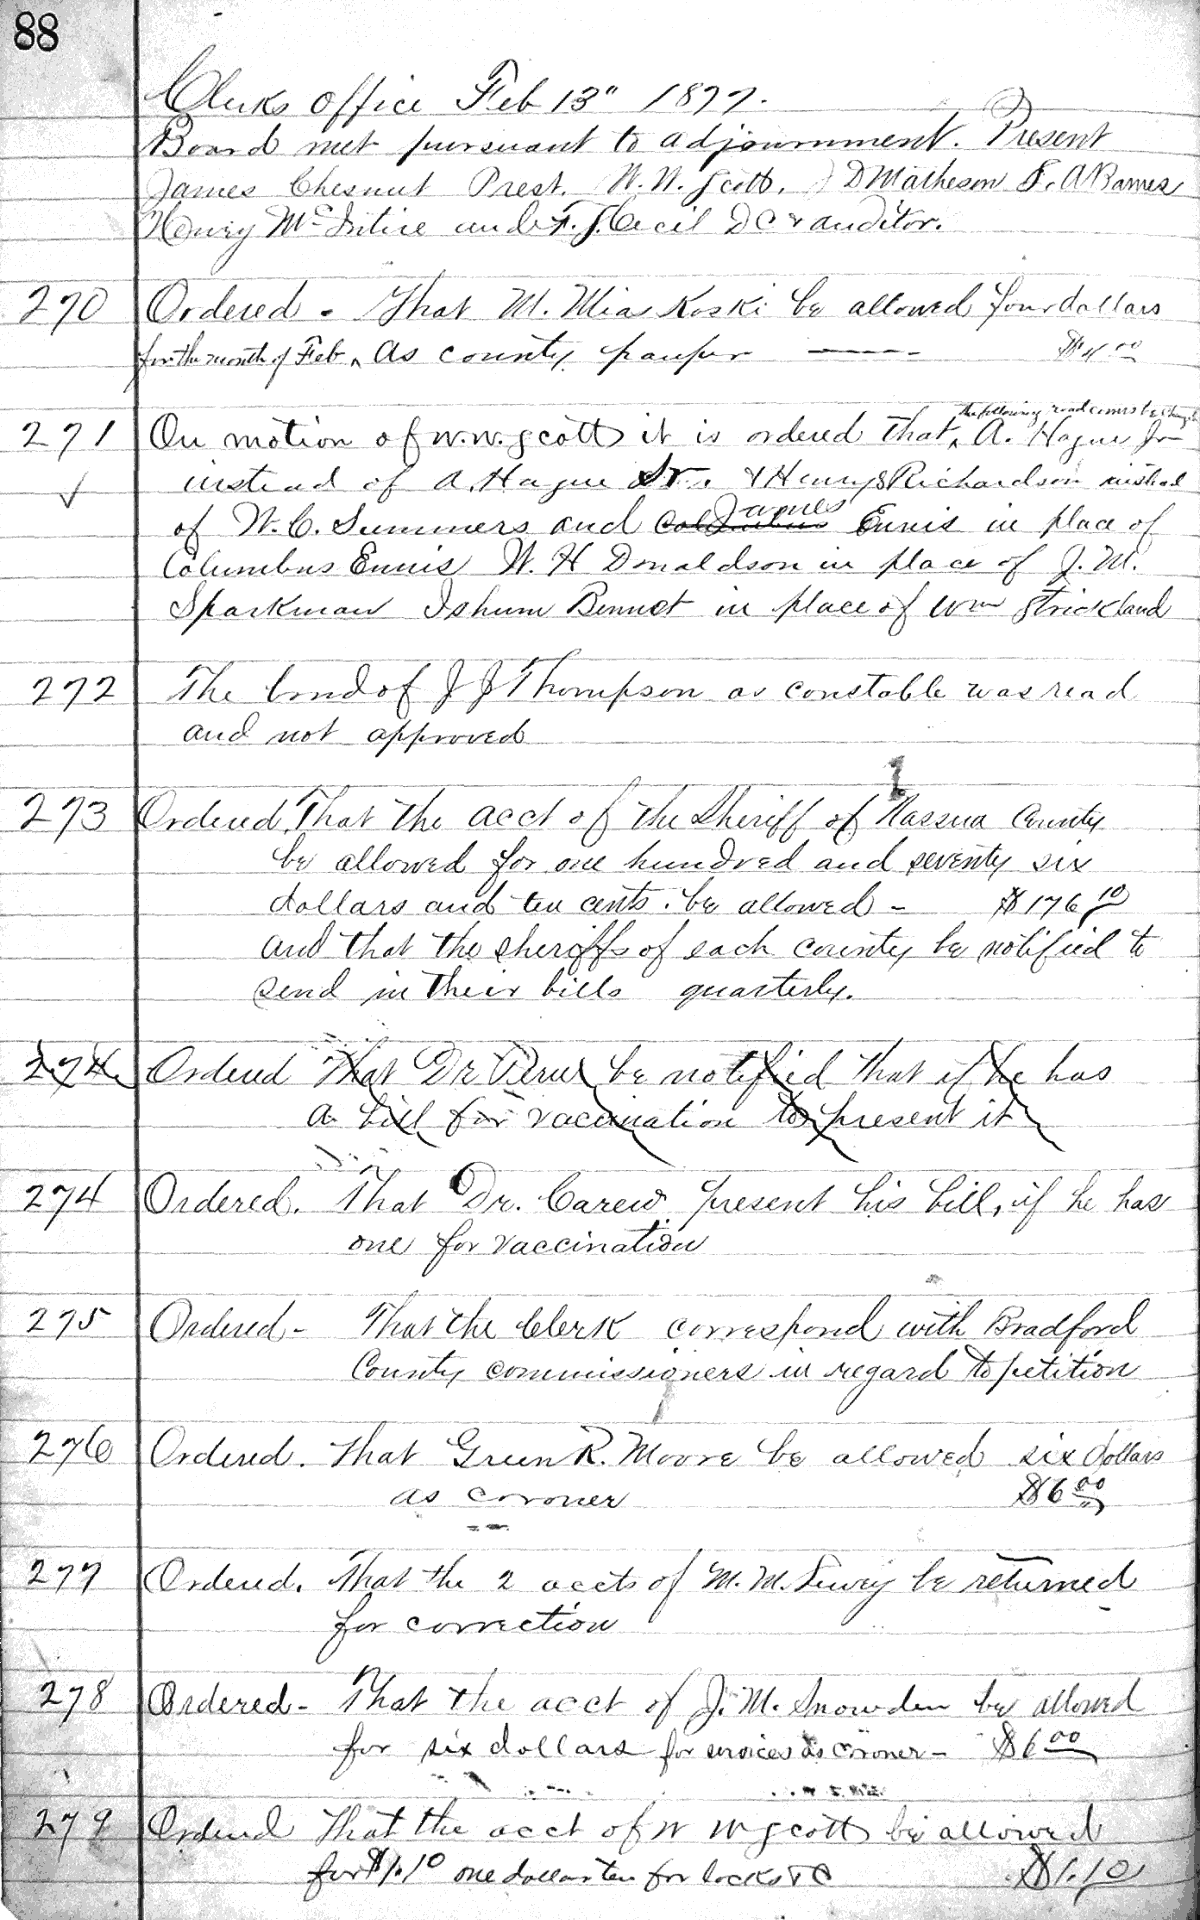 88
Clerks office Feb 13" 1877.
Board met pursuant to adjournment. Present
James Chesnut Prest. W. W. Scott, J D Matheson F. A Barnes
Henry McIntire and F. J. Cecil D C & auditor.
270 Ordered - That M. Mia Koski be allowed four dollars
for the month of Feb ^ As county pauper —— $4 00
the following road comrs be changed
271 On motion of W. W. Scott it is ordered that ^ A. Hague Jr
instead of A. Hague Sr. & Henry S Richardson instead
James
of W. C. Summers and Columbus Ennis in place of
Columbus Ennis W. H Donaldson in place of J. M.
Sparkman Ishum Bennet in place of Wm Strickland
272 The bond of J J Thompson as constable was read
and not approved
273 Ordered, That the acct of the Sheriff of Nassua County
be allowed for one hundred and seventy six
dollars and ten cents. be allowed - $176 10
and that the sheriffs of each county be notified to
send in their bills quarterly.
274 Ordered That Dr be notified that if he has
a bill for vaccination to present it
274 Ordered. That Dr. Carew present his bill, if he has
one for vaccination
275 Ordered - That the Clerk correspond with Bradford
County commissioners in regard to petition
276 Ordered. That Green R. Moore be allowed six dollars
as coroner $6 00
277 Ordered. That the 2 accts of M. M. be returned
for correction
278 Ordered - That the acct of J. M. Snowden be allowed
for six dollars for services as coroner - $6 00
279 Ordered That the acct of W W Scott be allowed
for $1.10 one dollar ten for locks & C $1.10